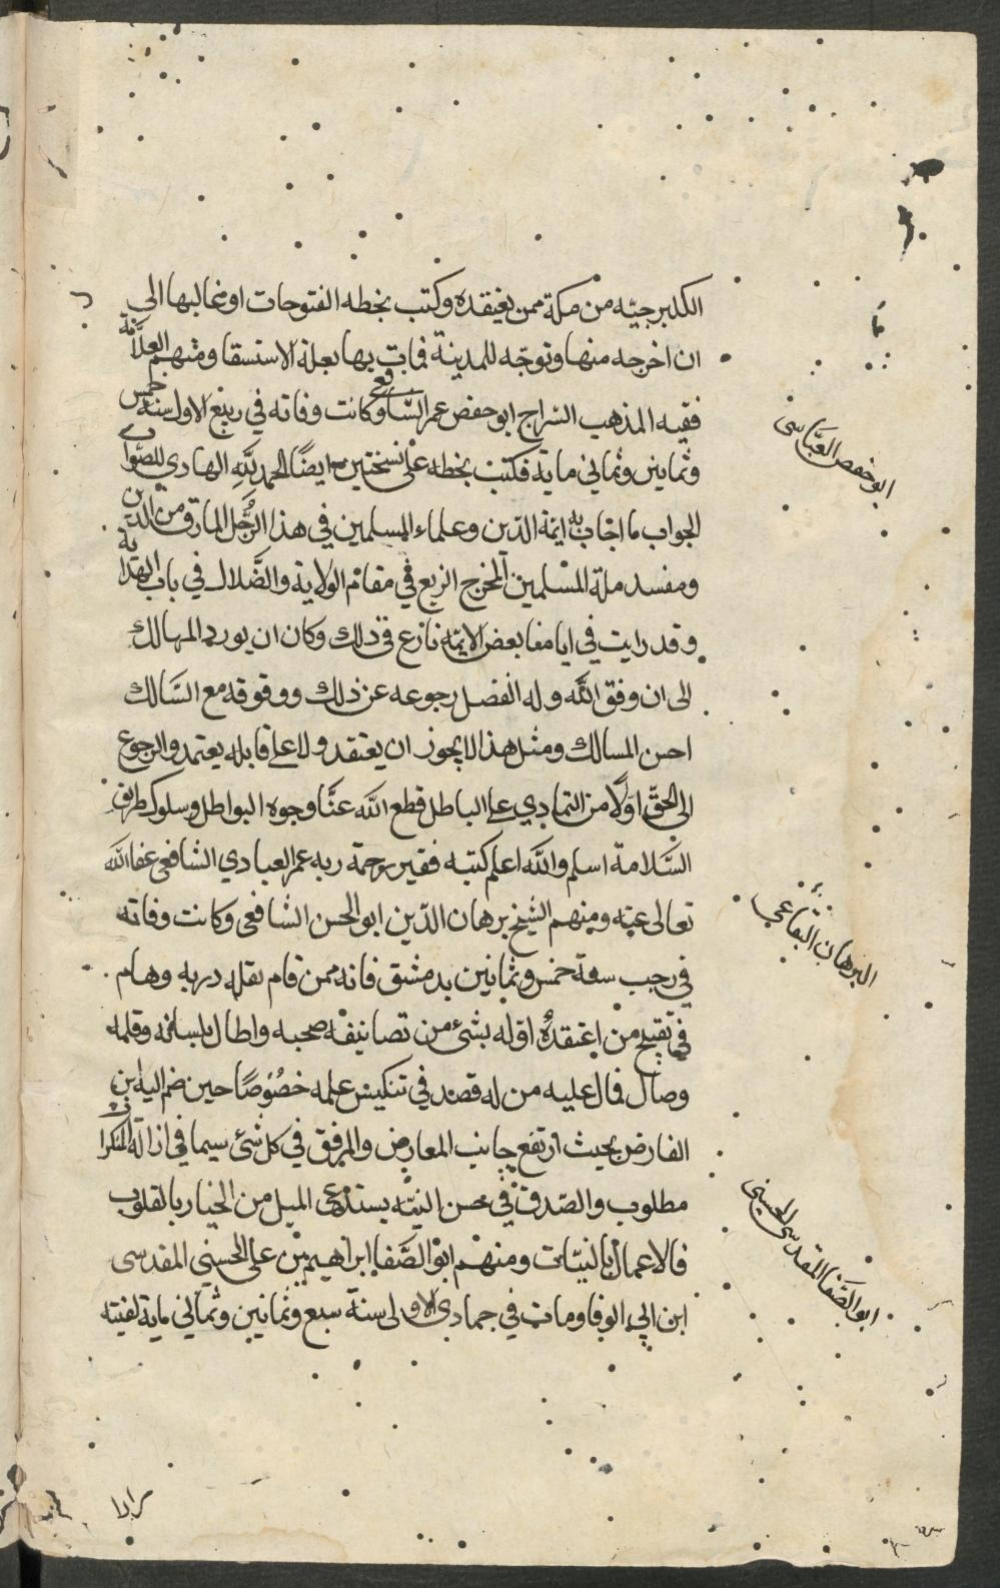 الكلبرجيه من مكة ممن يعتقده وكتب بخطه الفتوحات او غالبها الى
ان اخرجه منها وتوجه للمدينة فمات بها بعلة الاستسقا ومنهم العلامة
فقيه المذهب السراج ابو حفص عمر وكانت وفاته في ربيع الاول سنة خمس
وثمانين وثماني ماية فكتب بخطه على نسختين ايضًا الحمد لله الهادي للصواب
الجواب ما اجاب به ايمة الدين وعلماء المسلمين في هذا الرجل المارق من الدين
ومفسد ملة المسلمين المخرج الزيغ في مقام الولاية والضلال في باب الهداية
وقد رايت في ايامنا بعض الايمة نازع في ذلك وكان ان يورد المهالك
الى ان وفق الله وله الفضل رجوعه عن ذلك ووقوفه مع السالك
احسن المسالك ومثل هذا لا يجوز ان يعتقد ولا على قايله يعتمد والرجوع
الى الحق اولا من التمادي على الباطل قطع الله عنا وجوه البواطل وسلوك طريق
السلامة اسلم والله اعلم كتبه فقير رحمة ربه عمر العبادي الشافعي عفا الله
تعالى عنه ومنهم الشيخ برهان الدين ابو الحسن الشافعي وكانت وفاته
في رجب سنة خمس وثمانين بدمشق فانه ممن قام بقلة دربه وهام
في تقبيح من اعتقده او له بشئ من تصانيفه صحبه واطال بلسانه وقلمه
وصال فمال عليه من له قصد في تنكيس علمه خصوصًا حين ضم اليه ابن
الفارض بحيث ارتفع جانب المعارض والرفق في كل شئ سيما في ازالة المنكرات
مطلوب والصدق في حسن النية يستدعى الميل من الخيار بالقلوب
فالاعمال بالنيات ومنهم ابو الصفا ابراهيم بن علي الحسيني المقدسى
ابن ابي الوفا ومات في جمادي الاولى سنة سبع وثمانين وثماني ماية لقيته
ابو حفص العبادي
البرهان البقاعي
ابو الصفا المقدسي الحسيني